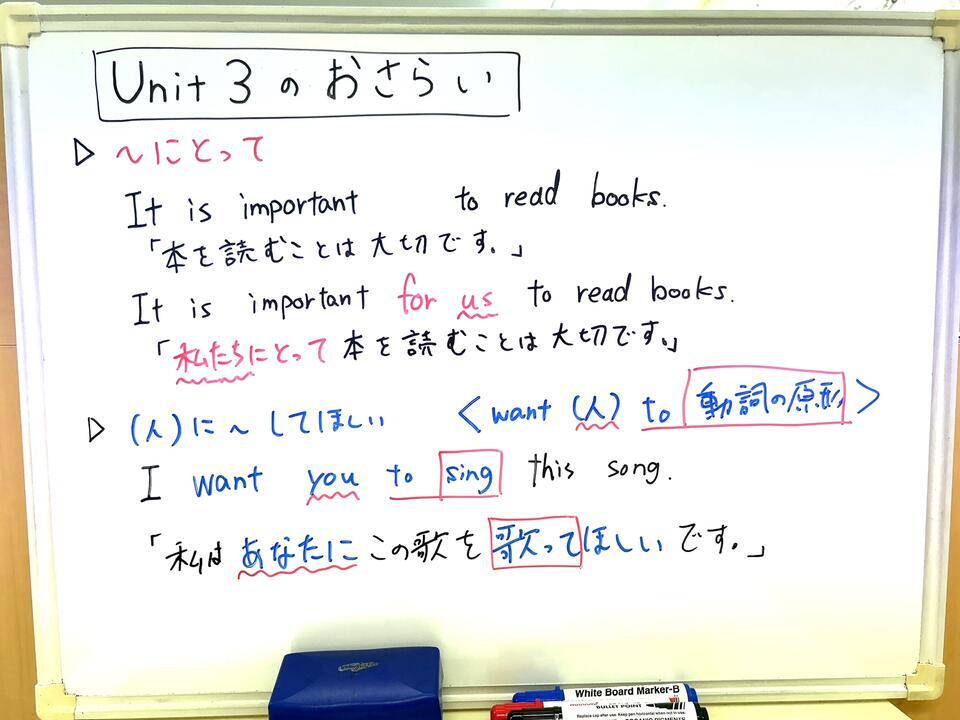 Unit 3 のおさらい
▷ ～にとって
It is important to read books.
「本を読むことは大切です。」
It is important for us to read books.
「私たちにとって本を読むことは大切です。」
▷ (人)に～してほしい <want (人) to 動詞の原形>
I want you to sing this song.
「私はあなたにこの歌を歌ってほしいです。」
White Board Marker-B
BULLET POINT